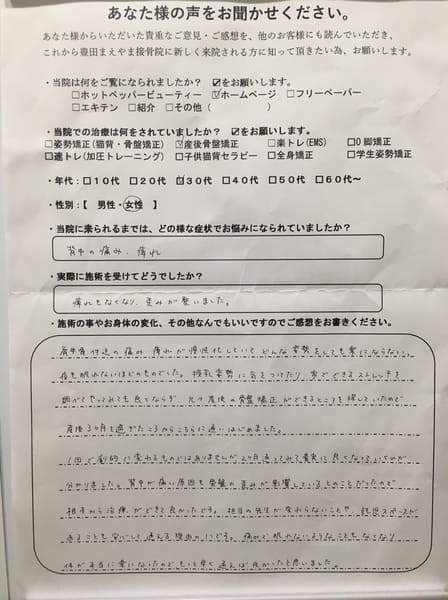 あなた様の声をお聞かせください。
あなた様からいただいた貴重なご意見・ご感想を、他のお客様にも読んでいただき、
これから豊田まえやま接骨院に新しく来院される方に知って頂きたい為、お願いします。
・当院は何をご覧になられましたか? ☑をお願いします。
□ホットペッパービューティー ☑ホームページ □フリーペーパー
□エキテン □紹介 □その他( )
・当院での治療は何をされていましたか? ☑をお願いします。
□姿勢矯正(猫背・骨盤矯正) ☑産後骨盤矯正 □楽トレ(EMS) □O脚矯正
□速トレ(加圧トレーニング) □子供猫背セラピー □全身矯正 □学生姿勢矯正
・年代:□10代 □20代 ☑30代 □40代 □50代 □60代~
・性別:【 男性・女性 】
・当院に来られるまでは、どの様な症状でお悩みになられていましたか?
背中の痛み、痺れ
・実際に施術を受けてどうでしたか?
痺れもなくなり、歪みが整いました。
・施術の事やお身体の変化、その他なんでもいいですのでご感想をお書きください。
肩甲骨付近の痛み、痺れが慢性化していて どんな姿勢をしても楽にならない、
夜も眠れないほどのものでした。授乳姿勢に気をつけたり、家でできるストレッチを
調べてやってみても良くならず、元々産後の骨盤矯正ができるところを探していたので
産後3ヶ月を過ぎたころからこちらに通いはじめました。
1回で劇的に変わるものではありませんが2ヶ月通ってみて着実に良くなっていくのが
分かりました。背中が痛い原因も骨盤の歪みが影響しているとのことだったので
根本から治療ができて良かったです。担当の先生が変わらないことや、託児スペースが
あることも安心して通える理由の1つです。痛みで眠れないようなこともなくなり
体が本当に楽になったのでもっと早く通えば良かったと思いました。